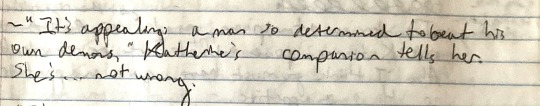 ~"It's appealing: a man so determined to beat his
own demons," Katherine's companion tells her.
She's... not wrong.